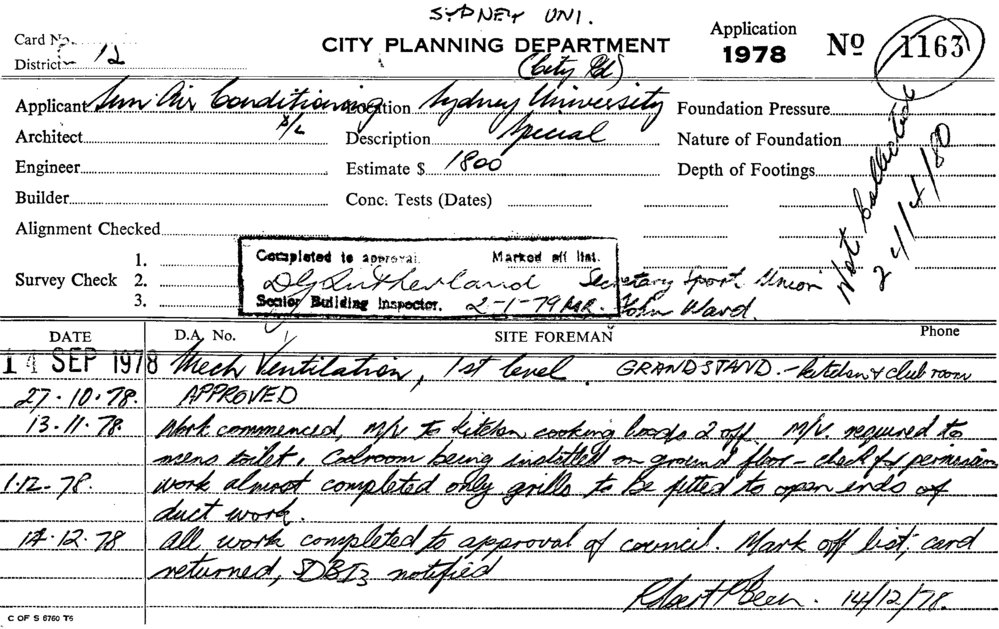 SYDNEY UNI.
Card No.
District 12
CITY PLANNING DEPARTMENT
Application
1978
No 1163
(City Rd)
Applicant Sun Air Conditioning P/L
Location Sydney University
Foundation Pressure
Architect
Description Special
Nature of Foundation
Engineer
Estimate $ 1800
Depth of Footings
Builder
Conc. Tests (Dates)
Not Collected
24/4/80
Alignment Checked
Survey Check 1.
2.
3.
Completed to approval. Marked off list.
D G Rutherland
Senior Building Inspector. 2-1-79
Secretary Sport Union
John Ward.
DATE D.A. No. SITE FOREMAN Phone
14 SEP 1978 Mech Ventilation, 1st level. GRANDSTAND. - kitchen & club room
27.10.78. APPROVED
13.11.78. Work commenced, M/V to kitchen cooking hoods 2 off. M/V. required to
mens toilet. Coolroom being installed on ground floor - check for permission
1.12.78. work almost completed only grills to be fitted to open ends of
duct work.
14.12.78 all work completed to approval of council. Mark off list, card
returned, notified
Robert 14/12/78.
C OF S 6760 T6